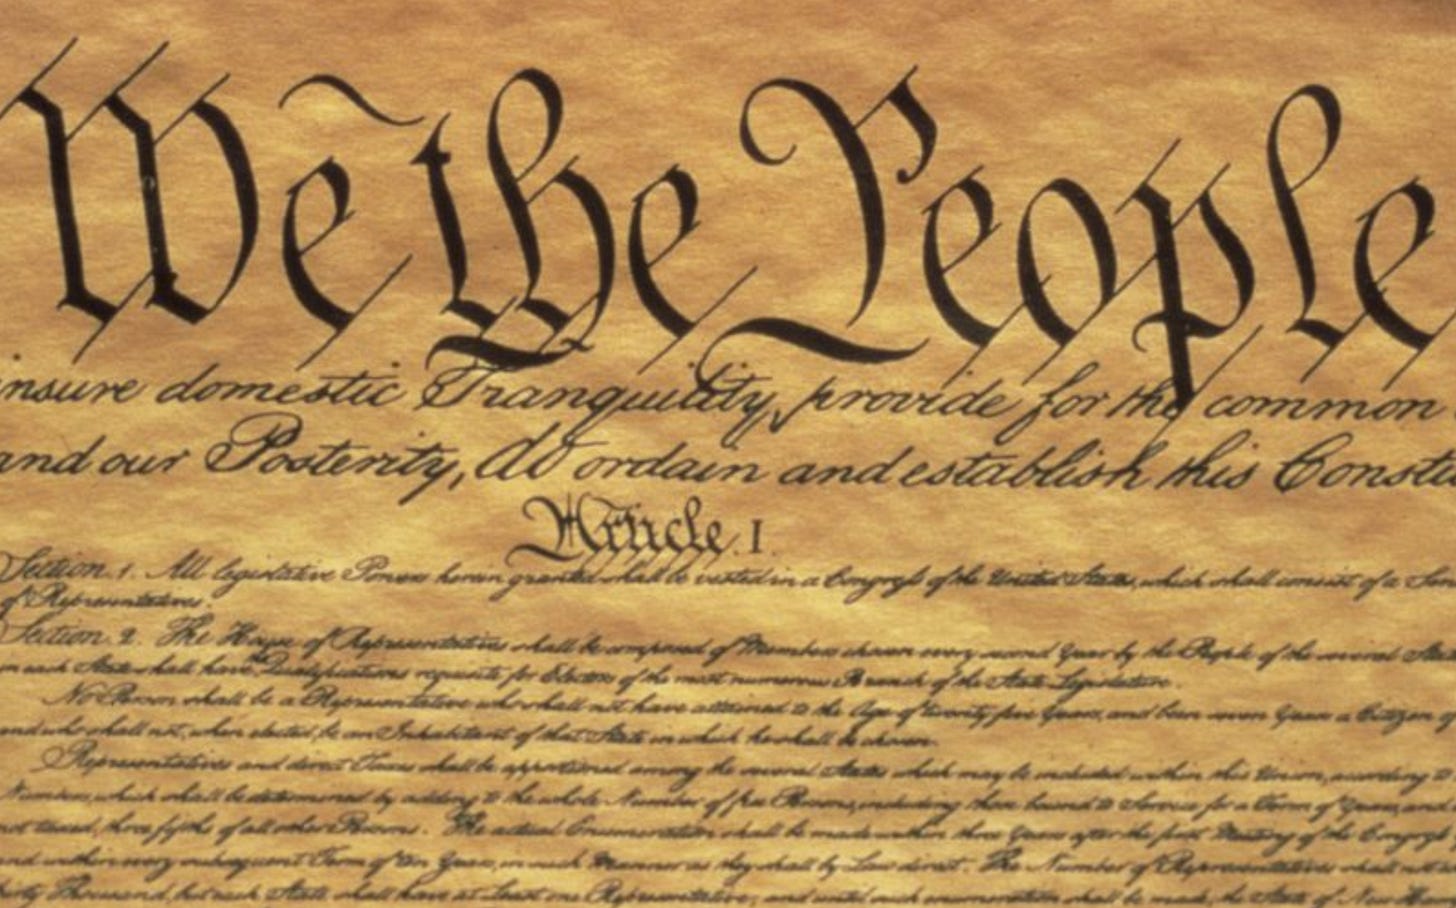 We the People
insure domestic Tranquility, provide for the common
and our Posterity, do ordain and establish this Constit
Article. I.
Section. 1. All legislative Powers herein granted shall be vested in a Congress of the United States, which shall consist of a Sen
of Representatives.
Section. 2. The House of Representatives shall be composed of Members chosen every second Year by the People of the several Stat
in each State shall have the Qualifications requisite for Electors of the most numerous Branch of the State Legislature.
No Person shall be a Representative who shall not have attained to the Age of twenty five Years, and been seven Years a Citizen of
and who shall not, when elected, be an Inhabitant of that State in which he shall be chosen.
Representatives and direct Taxes shall be apportioned among the several States which may be included within this Union, according to
Numbers, which shall be determined by adding to the whole Number of free Persons, including those bound to Service for a Term of Years, and
not taxed, three fifths of all other Persons. The actual Enumeration shall be made within three Years after the first Meeting of the Congress
and within every subsequent Term of ten Years, in such Manner as they shall by Law direct. The Number of Representatives shall not
thirty Thousand, but each State shall have at Least one Representative; and until such enumeration shall be made, the State of New Ham